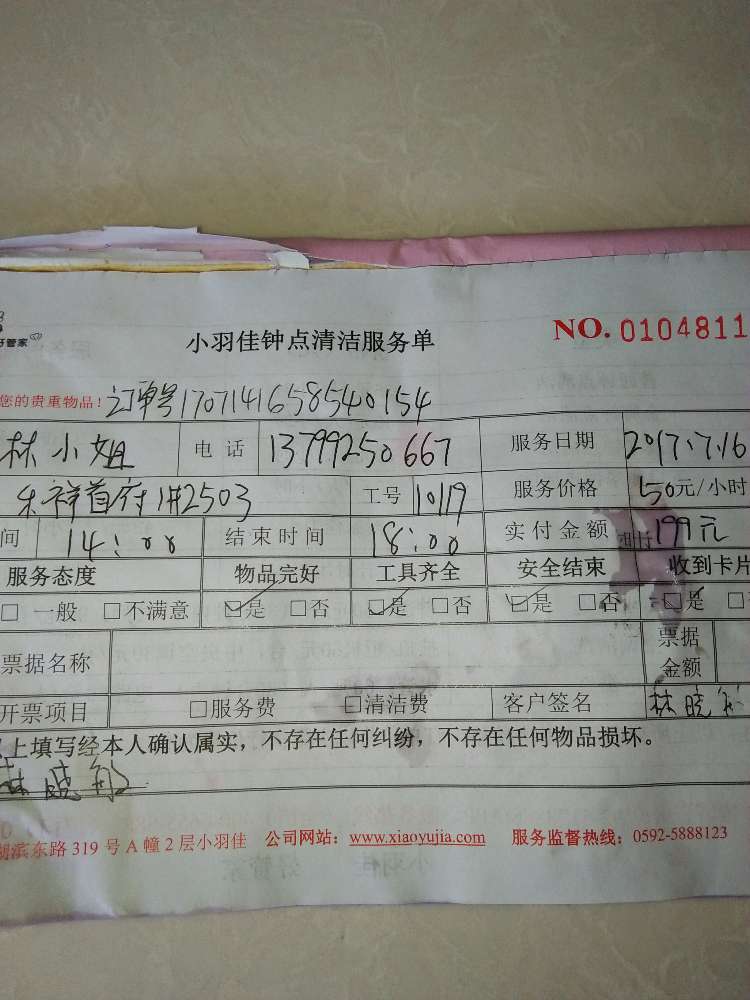 好管家
小羽佳钟点清洁服务单 NO. 0104811
您的贵重物品! 订单号170714165854 0154
林小姐 电话 13799250667 服务日期 2017.7.16
禾祥首府1#2503 工号 10119 服务价格 50元/小时
间 14:00 结束时间 18:00 实付金额 199元
服务态度 物品完好 工具齐全 安全结束 收到卡片
□ 一般 □不满意 ☑是 □否 ☑是 □否 ☑是 □否 ☑是 □
票据名称 票据金额
开票项目 □服务费 □清洁费 客户签名 林晓
上填写经本人确认属实，不存在任何纠纷，不存在任何物品损坏。
林晓
湖滨东路 319 号 A 幢 2 层小羽佳 公司网站：www.xiaoyujia.com 服务监督热线：0592-5888123